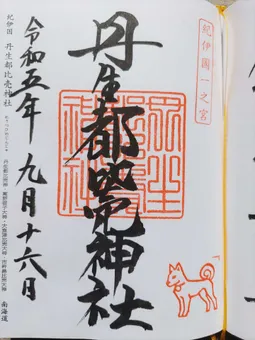 紀伊国一之宮
丹生都比売神社
令和五年九月十六日
紀伊国 丹生都比売神社
南海道